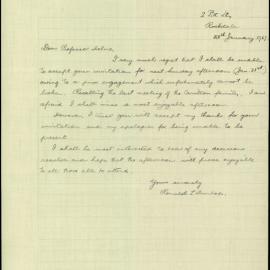 Rockdale
January
Dear Professor
I very much regret that I shall be unable
to accept your invitation for next Sunday afternoon (Jan 31st)
owing to a prior engagement which unfortunately cannot be
broken. Recalling the last meeting of the Carillon family, I am
afraid I shall miss a most enjoyable afternoon.
However I trust you will accept my thanks for your
invitation and my apologies for being unable to be
present.
I shall be most interested to hear of any decisions
reached and hope that the afternoon will prove enjoyable
to all those able to attend.
Yours sincerely
Ronald